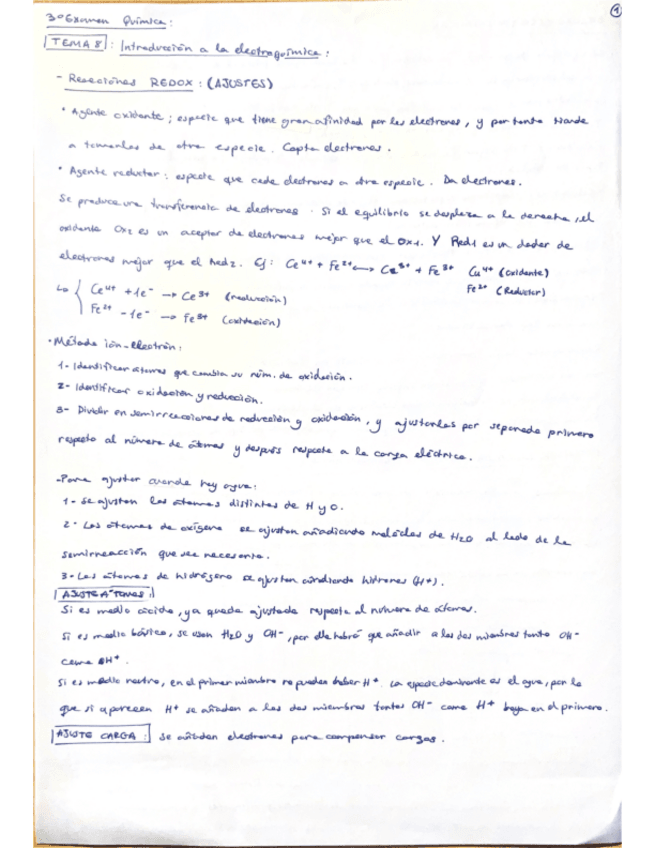 ①
3º Examen Química:
TEMA 8: Introducción a la electroquímica:
- Reacciones REDOX: (AJUSTES)
· Agente oxidante; especie que tiene gran afinidad por los electrones, y por tanto tiende
a tomarlos de otra especie. Capta electrones.
· Agente reductor: especie que cede electrones a otra especie. Da electrones.
Se produce una transferencia de electrones. Si el equilibrio se desplaza a la derecha, el
oxidante Ox2 es un aceptor de electrones mejor que el Ox1. Y Red1 es un dador de
electrones mejor que el Red2. Ej: Ce4+ + Fe2+ ⟷ Ce3+ + Fe3+ Cu4+ (oxidante)
Fe2+ (Reductor)
↳ { Ce4+ + 1e- → Ce3+ (reducción)
Fe2+ - 1e- → Fe3+ (oxidación)
· Método ion-electrón:
1- Identificar átomos que cambia su núm. de oxidación.
2- Identificar oxidación y reducción.
3- Dividir en semirreacciones de reducción y oxidación, y ajustarlas por separado primero
respecto al número de átomos y después respecto a la carga eléctrica.
- Para ajustar cuando hay agua:
1- Se ajustan los átomos distintos de H y O.
2- Los átomos de oxígeno se ajustan añadiendo moléclas de H2O al lado de la
semirreacción que sea necesario.
3- Los átomos de hidrógeno se ajustan añadiendo hidrones (H+).
AJUSTE ÁTOMOS:
Si es medio ácido, ya queda ajustada respecto al número de átomos.
Si es medio básico, se usan H2O y OH-, por ello habrá que añadir a los dos miembros tanto OH-
como H+.
Si es medio neutro, en el primer miembro no pueden haber H+. La especie dominante es el agua, por lo
que si aparecen H+ se añaden a los dos miembros tantos OH- como H+ haya en el primero.
AJUSTE CARGA: Se añaden electrones para compensar cargas.